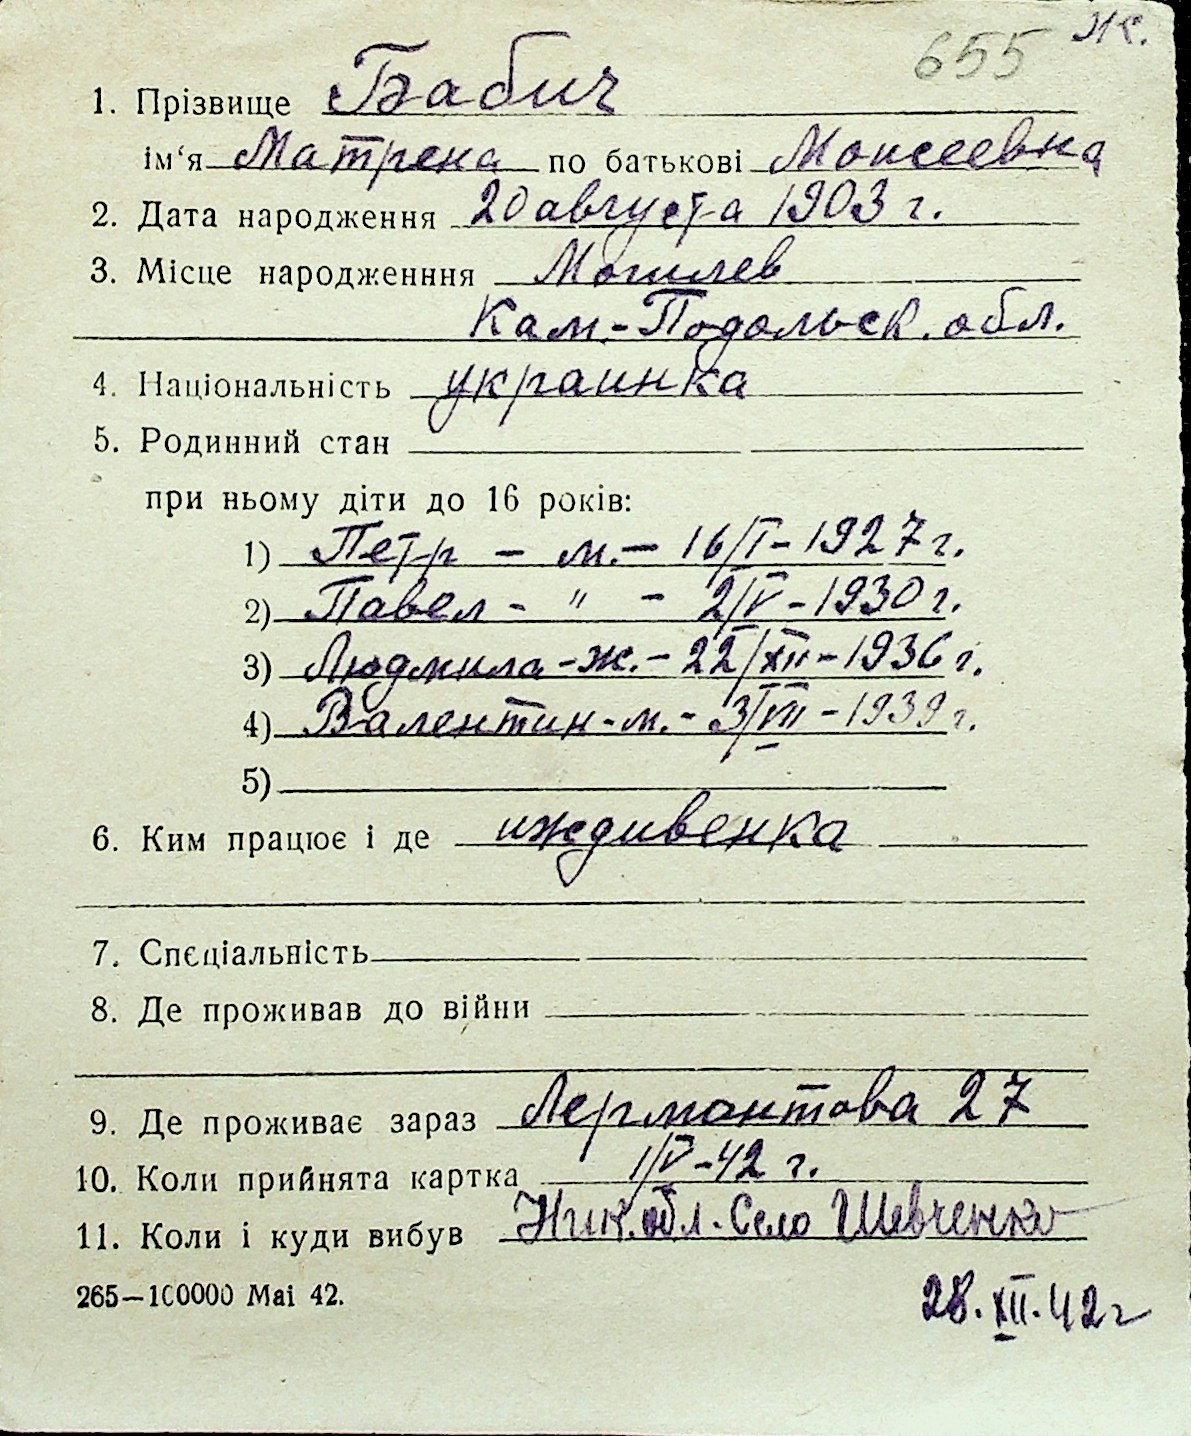 655 ж.
1. Прізвище Бабич
ім‘я Матрена по батькові Моисеевна
2. Дата народження 20 августа 1903 г.
3. Місце народженння Могилев
Кам.-Подольск. обл.
4. Національність украинка
5. Родинний стан
при ньому діти до 16 років:
1) Петр - м. - 16/I - 1927 г.
2) Павел - " - 2/IV - 1930 г.
3) Людмила - ж. - 22/XII - 1936 г.
4) Валентин - м. - 3/VII - 1939 г.
5)
6. Ким працює і де иждивенка
7. Спєціальність
8. Де проживав до війни
9. Де проживає зараз Лермонтова 27
10. Коли прийнята картка 1/V-42 г.
11. Коли і куди вибув Ник. обл. Село Шевченко
265—100000 Маі 42.
28.XII.42 г